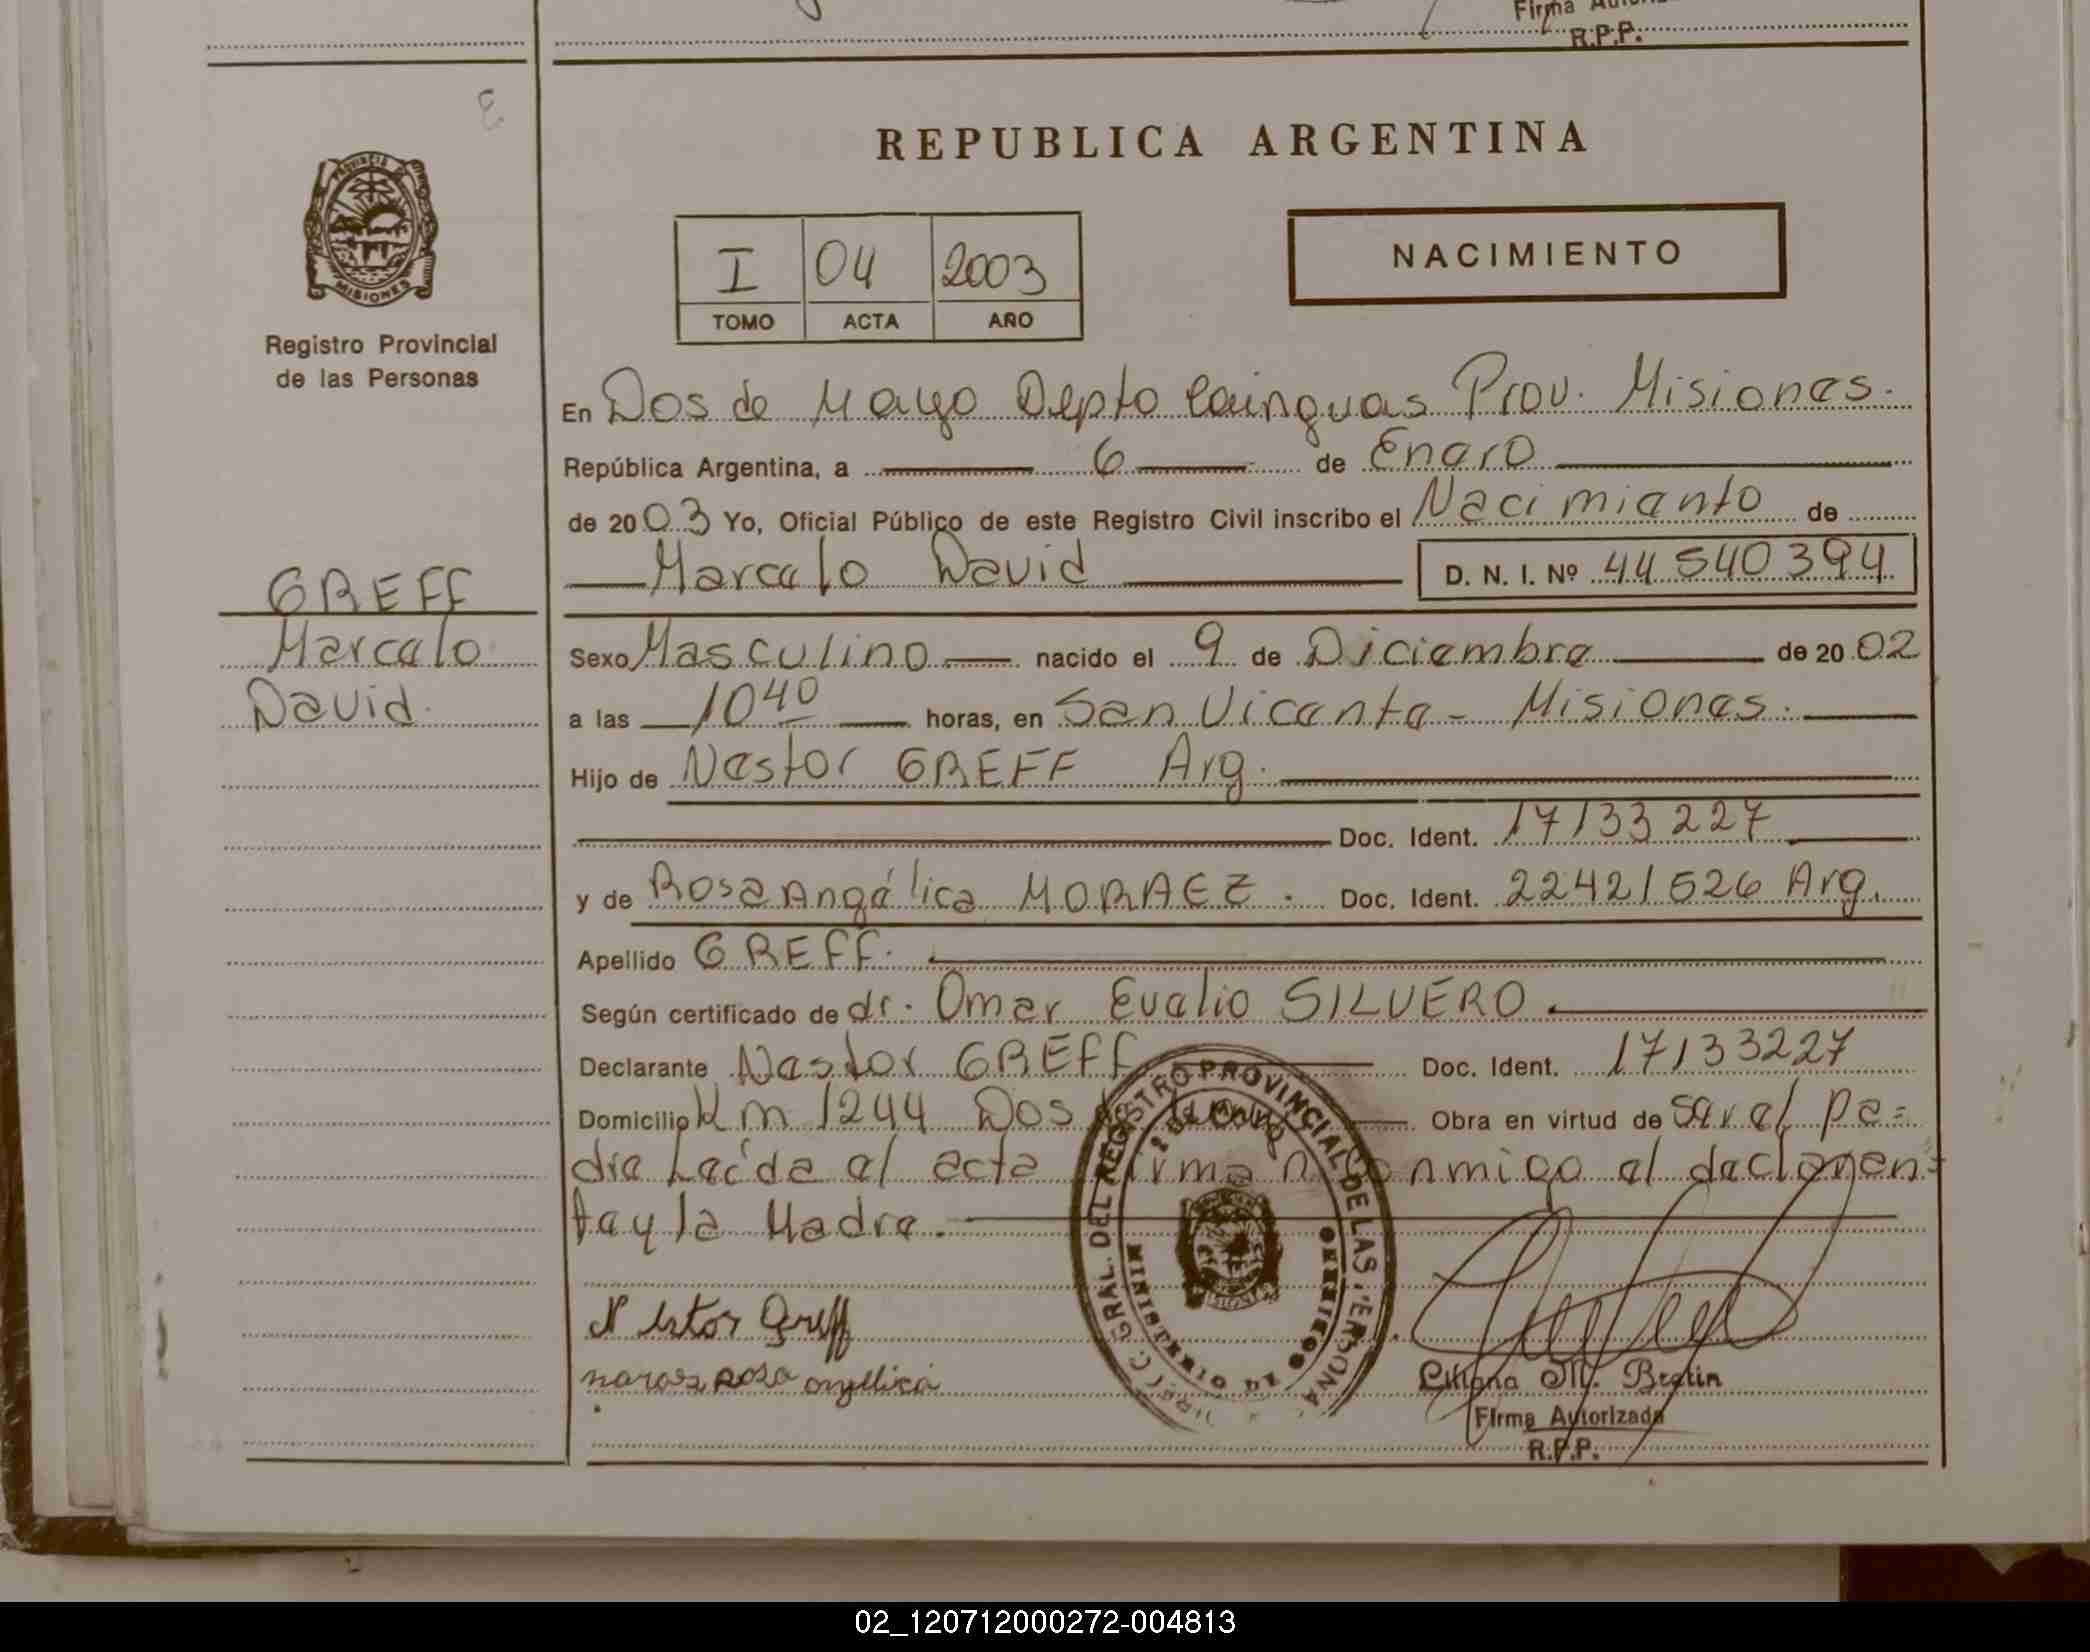 Firma
R.P.P.
E
PROVINCIA DE
MISIONES
Registro Provincial
de las Personas
GREFF
Marcelo
David.
REPUBLICA ARGENTINA
I 04 2003
TOMO ACTA AÑO
NACIMIENTO
En Dos de Mayo Depto Cainguas Prov. Misiones.
República Argentina, a 6 de Enero
de 2003 Yo, Oficial Público de este Registro Civil inscribo el Nacimiento de
Marcelo David D. N. I. Nº 44540394
Sexo Masculino nacido el 9 de Diciembre de 2002
a las 10 40 horas, en San Vicente - Misiones.
Hijo de Nestor GREFF Arg.
Doc. Ident. 17133227
y de Rosa Angélica MORAEZ. Doc. Ident. 22421526 Arg.
Apellido GREFF.
Según certificado de dr. Omar Evelio SILVERO.
Declarante Nestor GREFF Doc. Ident. 17133227
Domicilio Km 1244 Dos de Mayo Obra en virtud de ser el pa=
dre Leída el acta firman conmigo el declaran=
te y la Madre.
Nestor Greff
moraez rosa angelica
GRAL. DEL REGISTRO PROVINCIAL DE LAS PERSONA
2 DE MAYO
MINISTERIO DE GOBIERNO
Liliana M. Bratin
Firma Autorizada
R.P.P.
02_120712000272-004813